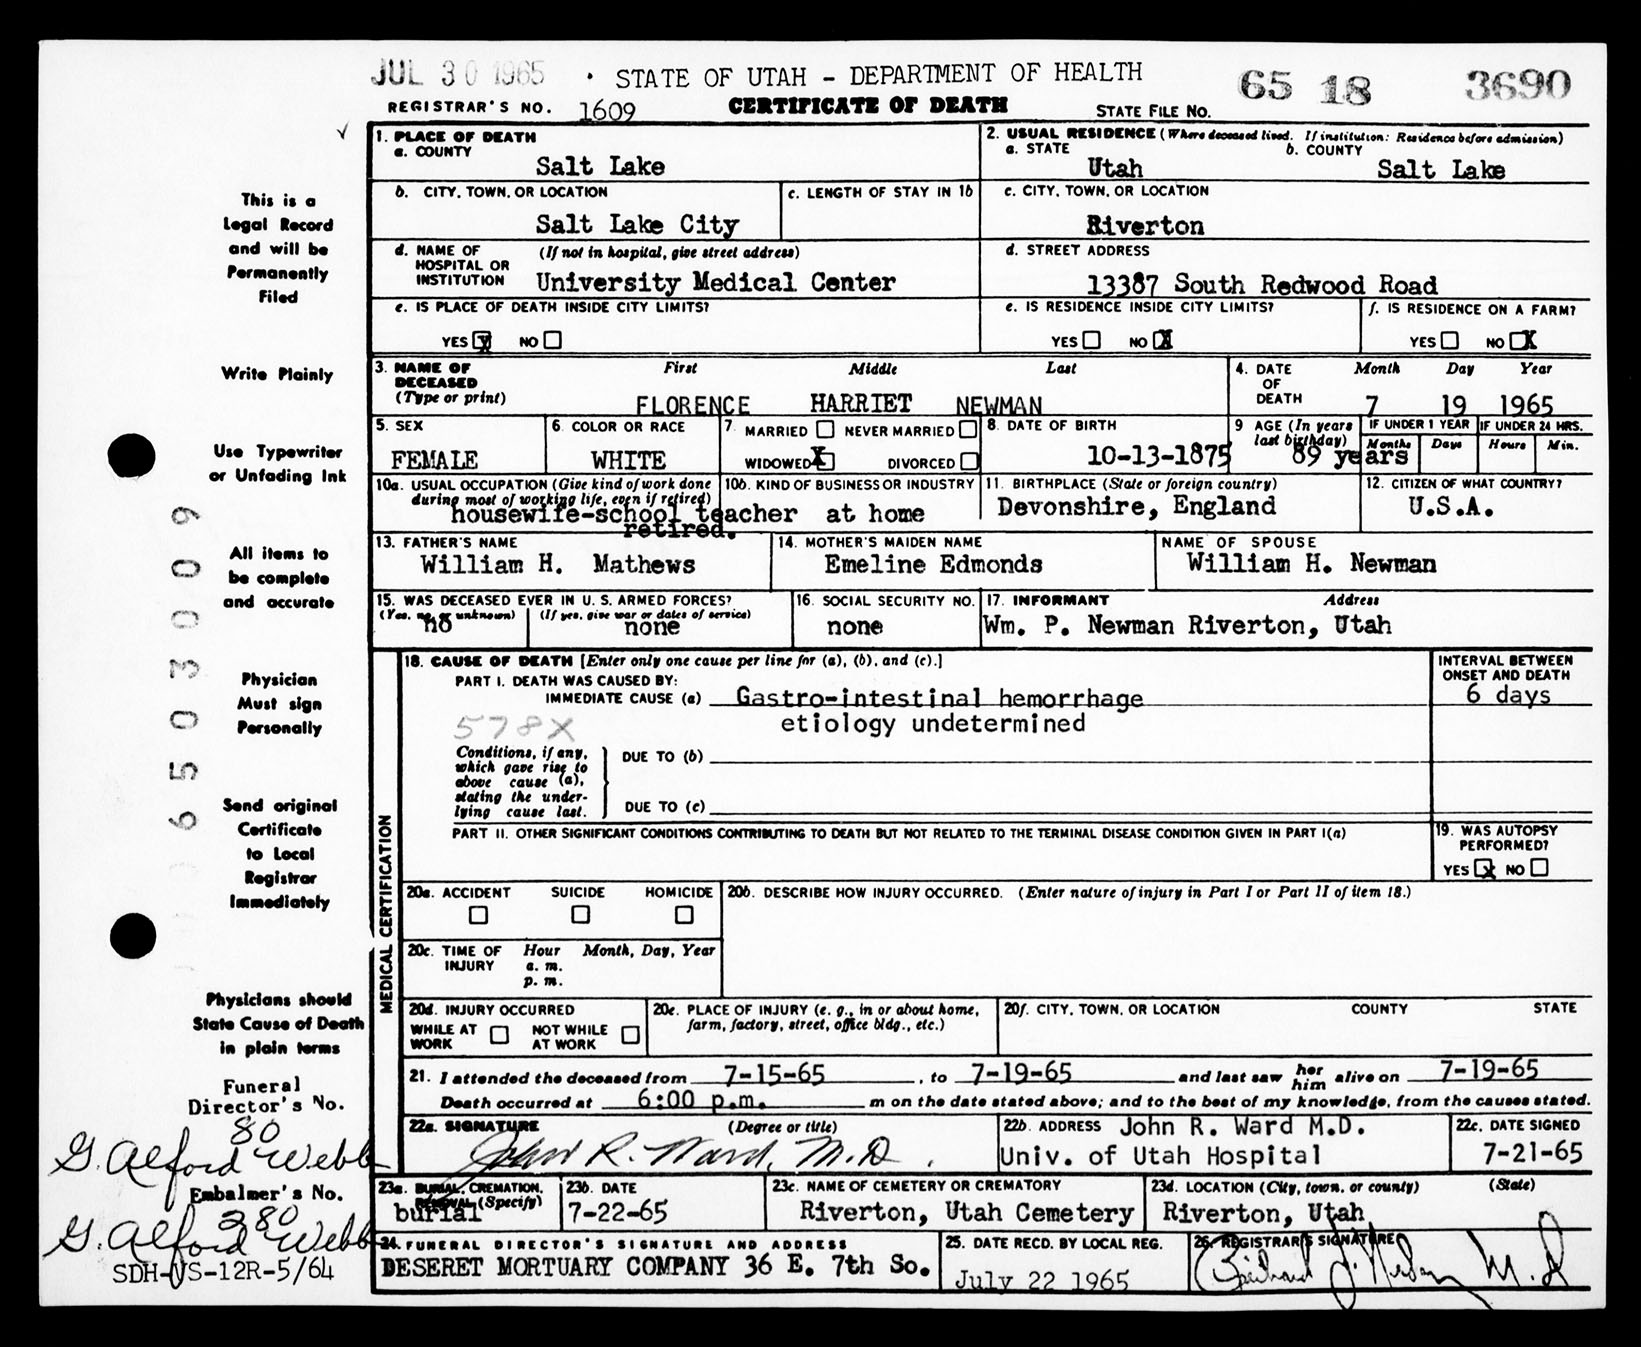 JUL 30 1965 · STATE OF UTAH - DEPARTMENT OF HEALTH 65 18 3690
REGISTRAR'S NO. 1609 CERTIFICATE OF DEATH STATE FILE NO.
1. PLACE OF DEATH
a. COUNTY
Salt Lake
2. USUAL RESIDENCE (Where deceased lived. If institution: Residence before admission)
a. STATE b. COUNTY
Utah Salt Lake
b. CITY, TOWN, OR LOCATION
Salt Lake City
c. LENGTH OF STAY IN 1b
c. CITY, TOWN, OR LOCATION
Riverton
d. NAME OF HOSPITAL OR INSTITUTION (If not in hospital, give street address)
University Medical Center
d. STREET ADDRESS
13387 South Redwood Road
e. IS PLACE OF DEATH INSIDE CITY LIMITS?
YES X NO
e. IS RESIDENCE INSIDE CITY LIMITS?
YES NO X
f. IS RESIDENCE ON A FARM?
YES NO X
3. NAME OF DECEASED (Type or print) First Middle Last
FLORENCE HARRIET NEWMAN
4. DATE OF DEATH Month Day Year
7 19 1965
5. SEX
FEMALE
6. COLOR OR RACE
WHITE
7. MARRIED NEVER MARRIED
WIDOWED X DIVORCED
8. DATE OF BIRTH
10-13-1875
9 AGE (In years last birthday)
89 years
IF UNDER 1 YEAR
Months Days
IF UNDER 24 HRS.
Hours Min.
10a. USUAL OCCUPATION (Give kind of work done during most of working life, even if retired)
housewife-school teacher
retired.
10b. KIND OF BUSINESS OR INDUSTRY
at home
11. BIRTHPLACE (State or foreign country)
Devonshire, England
12. CITIZEN OF WHAT COUNTRY?
U.S.A.
13. FATHER'S NAME
William H. Mathews
14. MOTHER'S MAIDEN NAME
Emeline Edmonds
NAME OF SPOUSE
William H. Newman
15. WAS DECEASED EVER IN U. S. ARMED FORCES?
(Yes, no, or unknown) (If yes, give war or dates of service)
no none
16. SOCIAL SECURITY NO.
none
17. INFORMANT Address
Wm. P. Newman Riverton, Utah
MEDICAL CERTIFICATION
18. CAUSE OF DEATH [Enter only one cause per line for (a), (b), and (c).]
PART I. DEATH WAS CAUSED BY:
IMMEDIATE CAUSE (a) Gastro-intestinal hemorrhage
etiology undetermined
578X
Conditions, if any, which gave rise to above cause (a), stating the underlying cause last.
DUE TO (b)
DUE TO (c)
INTERVAL BETWEEN ONSET AND DEATH
6 days
PART II. OTHER SIGNIFICANT CONDITIONS CONTRIBUTING TO DEATH BUT NOT RELATED TO THE TERMINAL DISEASE CONDITION GIVEN IN PART I(a)
19. WAS AUTOPSY PERFORMED?
YES X NO
20a. ACCIDENT SUICIDE HOMICIDE
20b. DESCRIBE HOW INJURY OCCURRED. (Enter nature of injury in Part I or Part II of item 18.)
20c. TIME OF INJURY Hour Month, Day, Year
a. m.
p. m.
20d. INJURY OCCURRED
WHILE AT WORK NOT WHILE AT WORK
20e. PLACE OF INJURY (e. g., in or about home, farm, factory, street, office bldg., etc.)
20f. CITY, TOWN, OR LOCATION COUNTY STATE
21. I attended the deceased from 7-15-65, to 7-19-65 and last saw her him alive on 7-19-65
Death occurred at 6:00 p.m. m on the date stated above; and to the best of my knowledge, from the causes stated.
22a. SIGNATURE (Degree or title)
John R. Ward, M.D.
22b. ADDRESS John R. Ward M.D.
Univ. of Utah Hospital
22c. DATE SIGNED
7-21-65
23a. BURIAL, CREMATION, REMOVAL (Specify)
burial
23b. DATE
7-22-65
23c. NAME OF CEMETERY OR CREMATORY
Riverton, Utah Cemetery
23d. LOCATION (City, town, or county) (State)
Riverton, Utah
24. FUNERAL DIRECTOR'S SIGNATURE AND ADDRESS
DESERET MORTUARY COMPANY 36 E. 7th So.
25. DATE RECD. BY LOCAL REG.
July 22 1965
26. REGISTRAR'S SIGNATURE
M.D
This is a
Legal Record
and will be
Permanently
Filed
Write Plainly
Use Typewriter
or Unfading Ink
All items to
be complete
and accurate
Physician
Must sign
Personally
Send original
Certificate
to Local
Registrar
Immediately
Physicians should
State Cause of Death
in plain terms
Funeral
Director's No.
80
G. Alford Webb
Embalmer's No.
280
G. Alford Webb
SDH-VS-12R-5/64
65030009